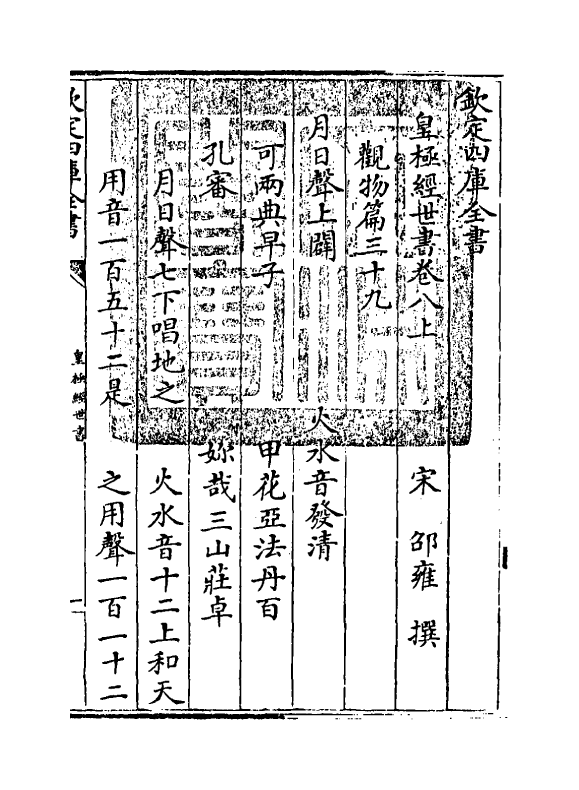 欽定四庫全書
皇極經世書卷八上
宋 邵雍 撰
觀物篇三十九
月日聲上闢
火水音發清
可兩典早子
甲花亞法丹百
孔審
妳哉三山莊卓
月日聲七下唱地之
火水音十二上和天
用音一百五十二是
之用聲一百一十二
欽定四庫全書
皇極經世書